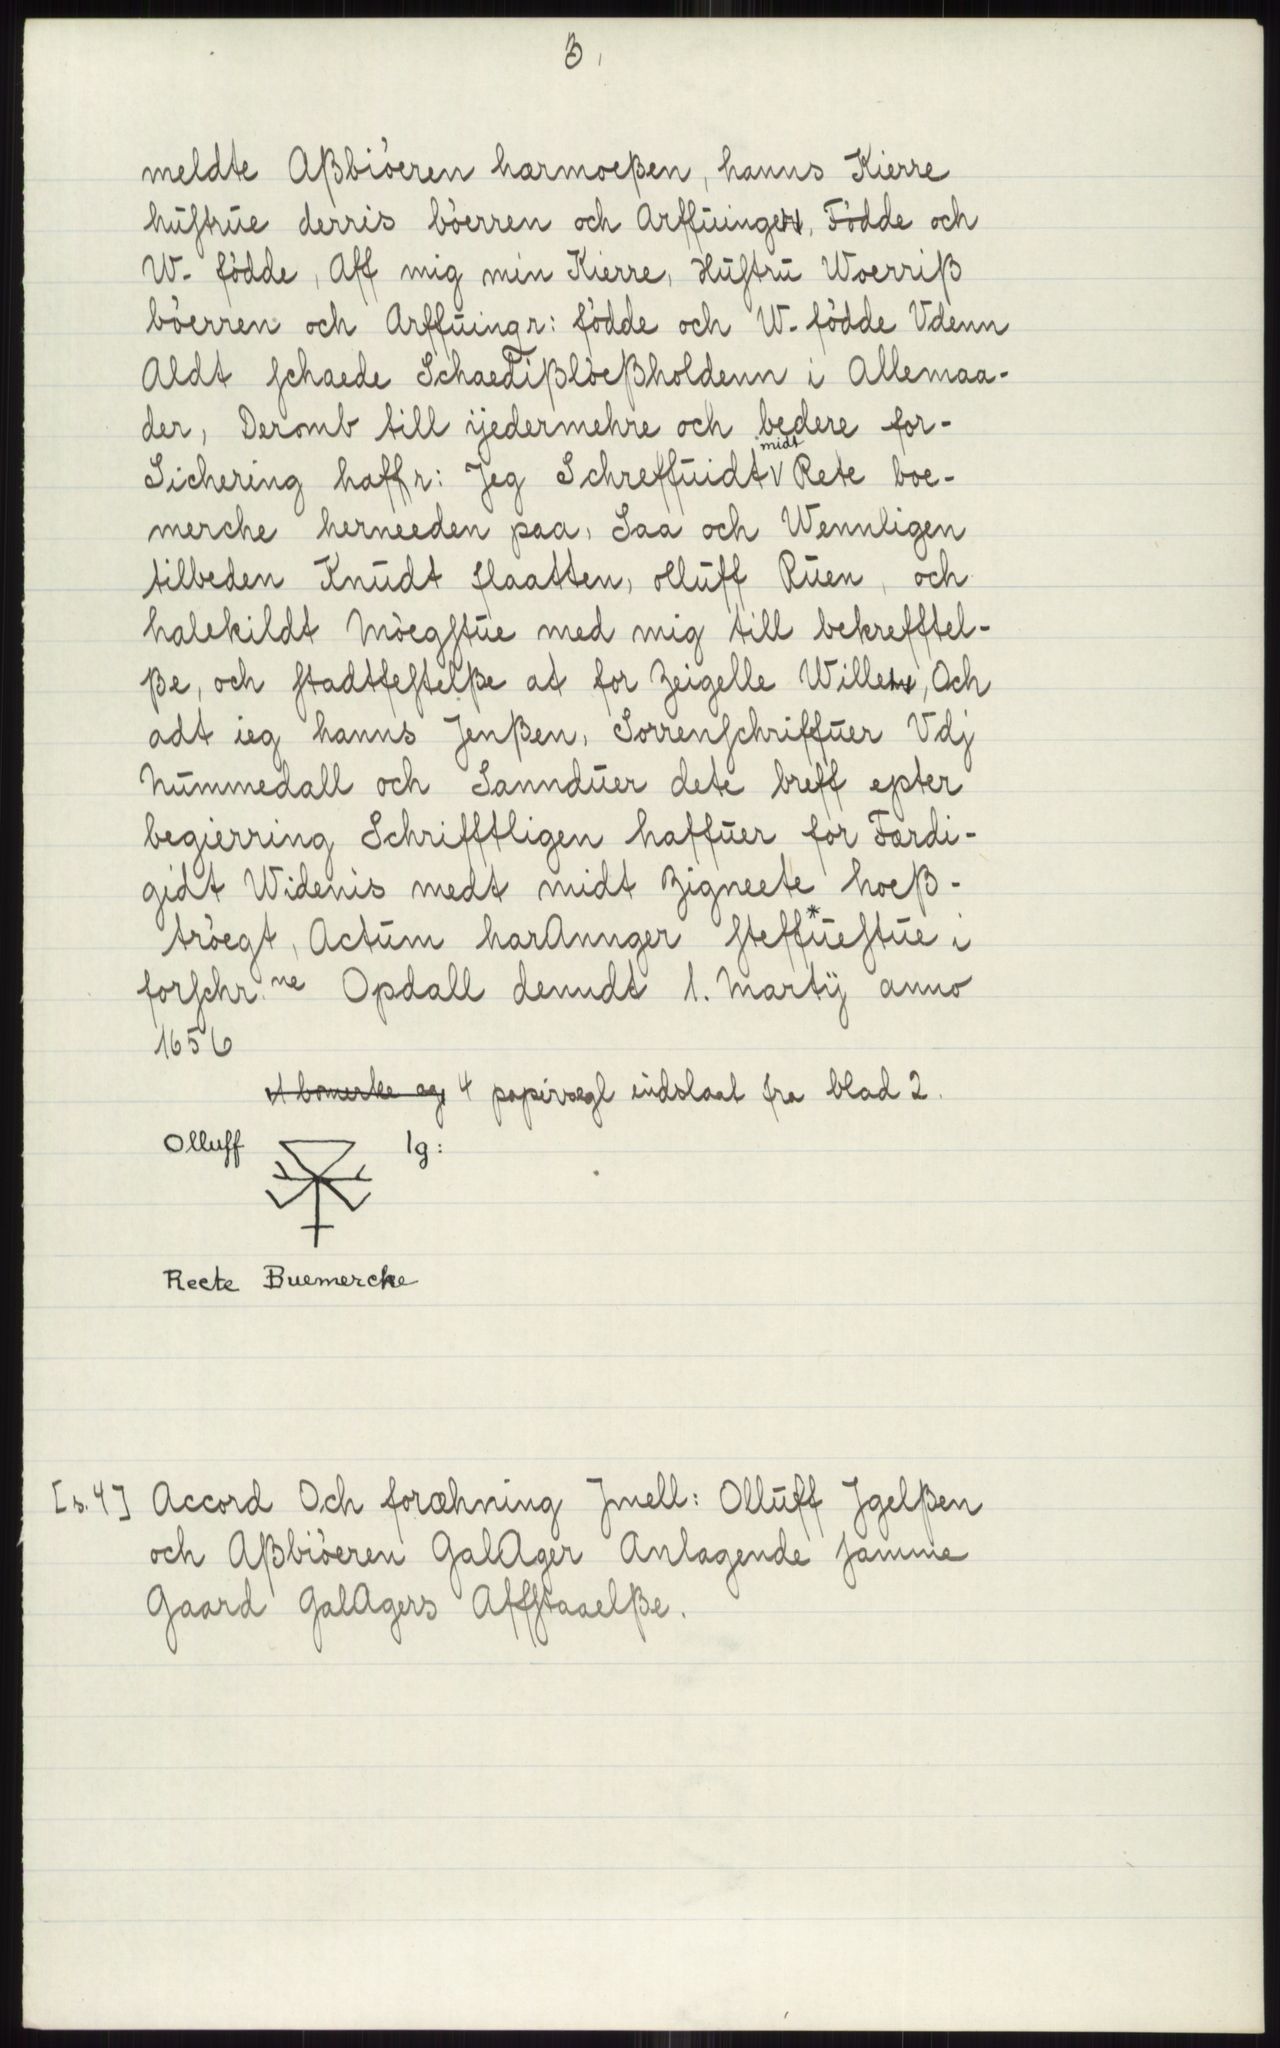 3,
meldte Aßbiöeren harmoeßen, hanns Kierre
hustrue derris böerren och Arffuinger, Födde och
W- födde, Aff mig min Kierre, Hustru Woerriß
böerren och Arffuingr: födde och W- födde Vdenn
Aldt schaede Schaedißlöeßholdenn i Allemaa-
der, Deromb till ijedermehre och bedere for-
Sichering haffr: Jeg Schreffuidt midt Rete boe-
merche herneeden paa, Saa och Wennligen
tilbeden Knudt flaatten, olluff Ruen, och
halskildt Möegstue med mig till bekrefftel-
ße, och stadtfestelße at for Zeigelle Wille, Och
adt ieg hanns Jenßen, Sorrenschriffuer Vdj
Nummedall och Sannduer dete breff epter
begierring Schrifftligen haffuer for Færdi-
gidt Widenis medt midt Zigneete hoeß-
tröegt, Actum harAnnger steffuestue * i
forschr. ne Opdall denndt 1. Martÿ anno
1656
bomerke og 4 papirsegl indslaat fra blad 2.
Olluff Ig:
Reete Buemercke
[s.4] Accord Och foræhning Jmell: Olluff Jgelßen
och Aßbiöeren GalAger Anlagende samme
Gaard GalAgers Affstaaelße.